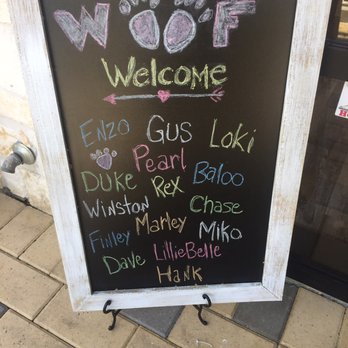 WOOF
Welcome
Enzo Gus Loki
Pearl
Duke Rex Baloo
Winston Chase
Finley Marley Miko
Dave LillieBelle
Hank